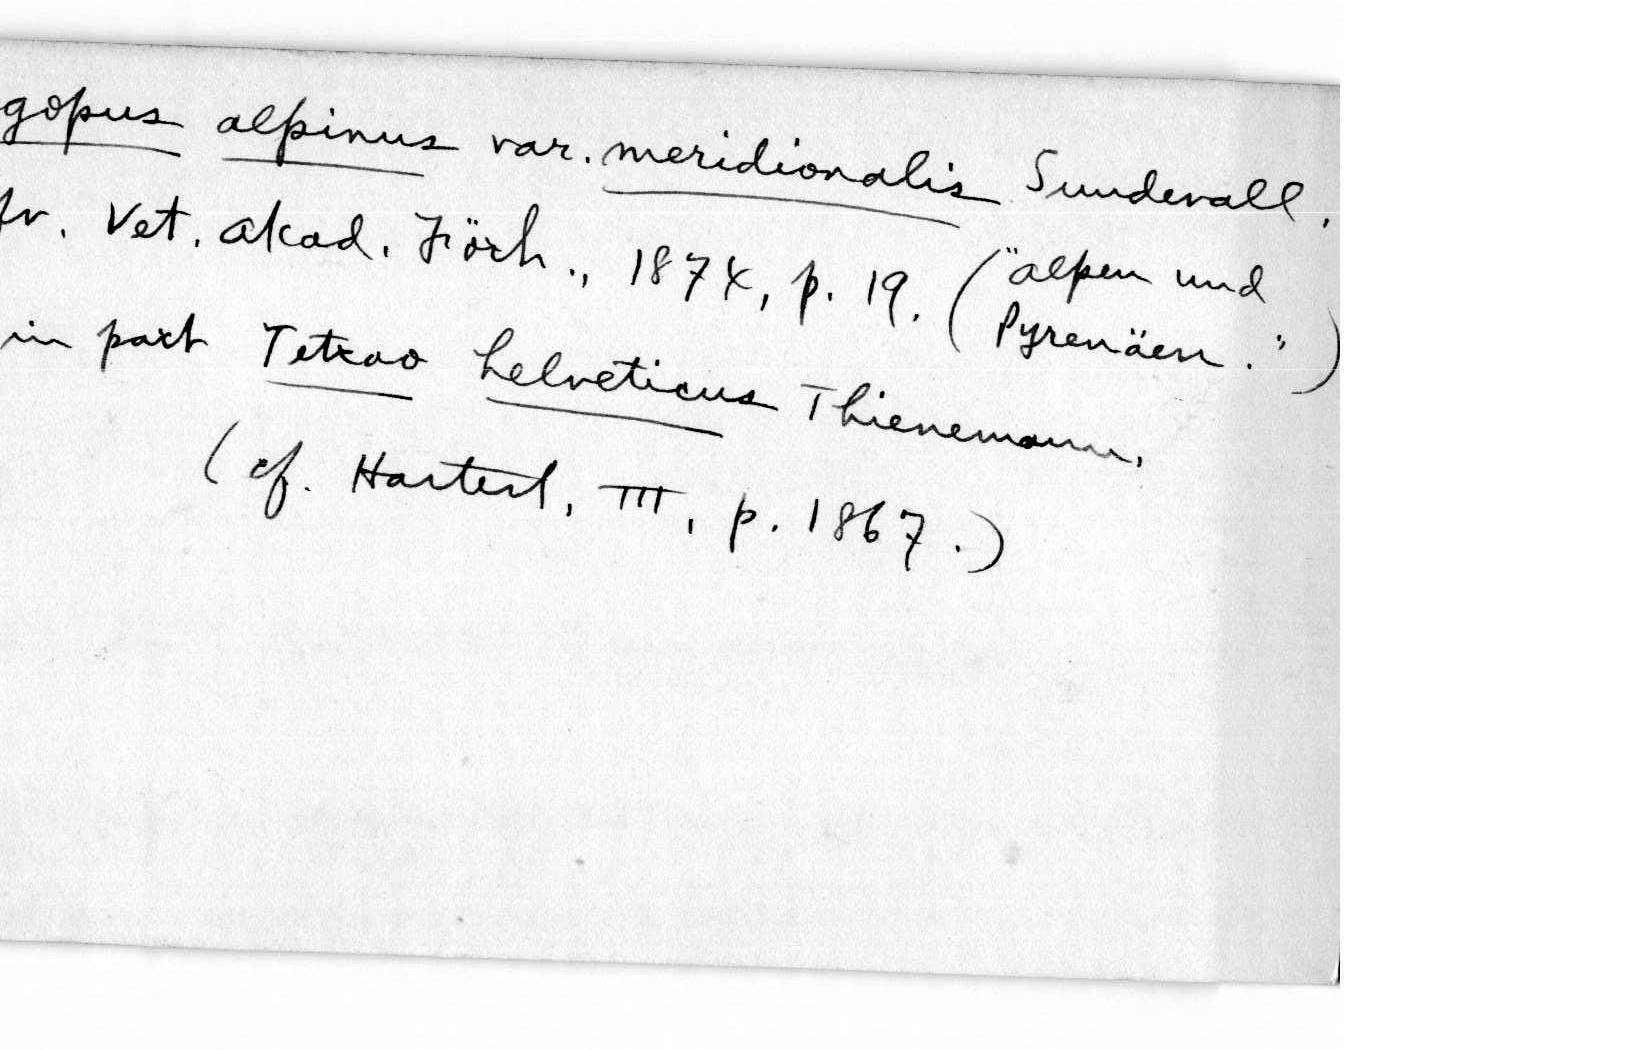 gopus alpinus var. meridionalis Sundevall,
fv. Vet. Akad. Förh., 1874, p. 19. ("Alpen und
Pyrenäen.")
in part Tetrao helveticus Thienemann,
(cf. Hartert, III, p. 1867.)